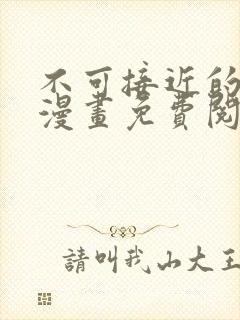 不可接近的
漫畫免費閱
請叫我山大王